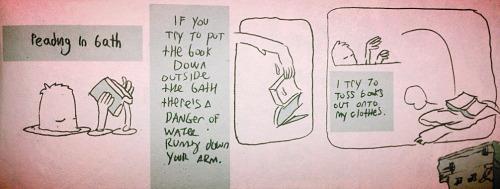 Reading in bath
IF YOU
TRY TO PUT
THE BOOK
DOWN
OUTSIDE
THE BATH
THERE'S A
DANGER OF
WATER
RUNNY DOWN
YOUR ARM.
I TRY TO
TOSS BOOKS
OUT ONTO
MY CLOTHES.